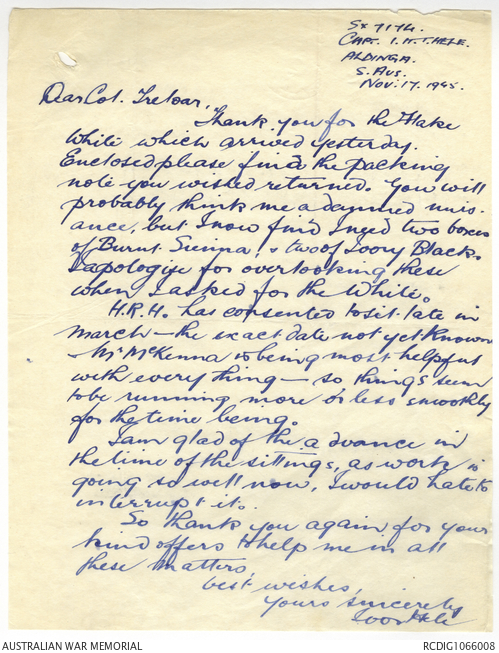 SX 7174.
CAPT. I. H. T. HELE.
ALDINGA.
S. AUS.
NOV. 17. 1945.
Dear Col. Treloar,
Thank you for the Flake
White which arrived yesterday.
Enclosed please find the packing
note you wished returned. You will
probably think me a damned nuis-
ance, but I now find I need two boxes
of Burnt Sienna, & two of Ivory Black.
I apologize for overlooking these
when I asked for the White.
H.R.H. has consented to sit late in
March — the exact date not yet known
— Mr McKenna is being most helpful
with everything — so, things seem
to be running more or less smoothly
for the time being.
I am glad of the advance in
the time of the sittings, as work is
going so well now, I would hate to
interrupt it.
So thank you again for your
kind offers to help me in all
these matters,
best wishes,
yours sincerely
Ivor Hele
AUSTRALIAN WAR MEMORIAL
RCDIG1066008